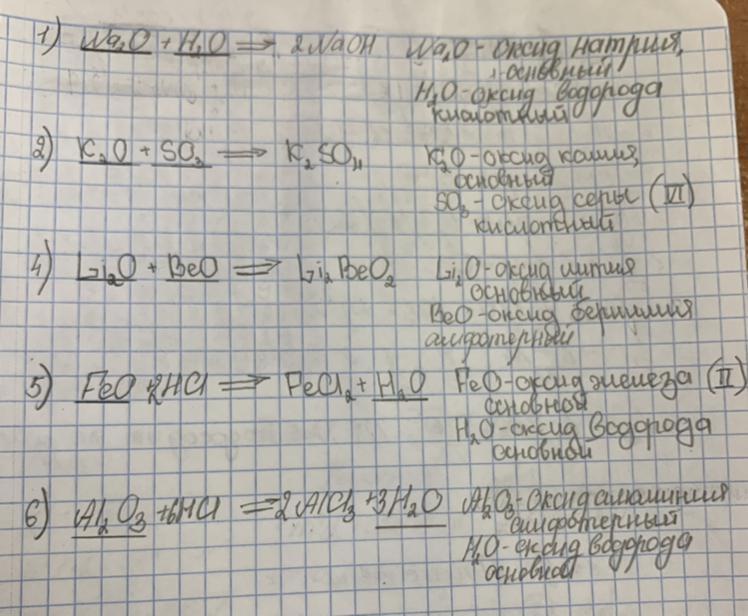 1) Na₂O + H₂O ⟹ 2NaOH Na₂O - оксид натрия,
основный
H₂O - оксид водорода
кислотный
2) K₂O + SO₃ ⟹ K₂SO₄ K₂O - оксид калия,
основный
SO₃ - оксид серы (VI)
кислотный
4) Li₂O + BeO ⟹ Li₂BeO₂ Li₂O - оксид лития
основный
BeO - оксид бериллия
амфотерный
5) FeO + 2HCl ⟹ FeCl₂ + H₂O FeO - оксид железа (II)
основной
H₂O - оксид водорода
основной
6) Al₂O₃ + 6HCl ⟹ 2AlCl₃ + 3H₂O Al₂O₃ - оксид алюминия
амфотерный
H₂O - оксид водорода
основной